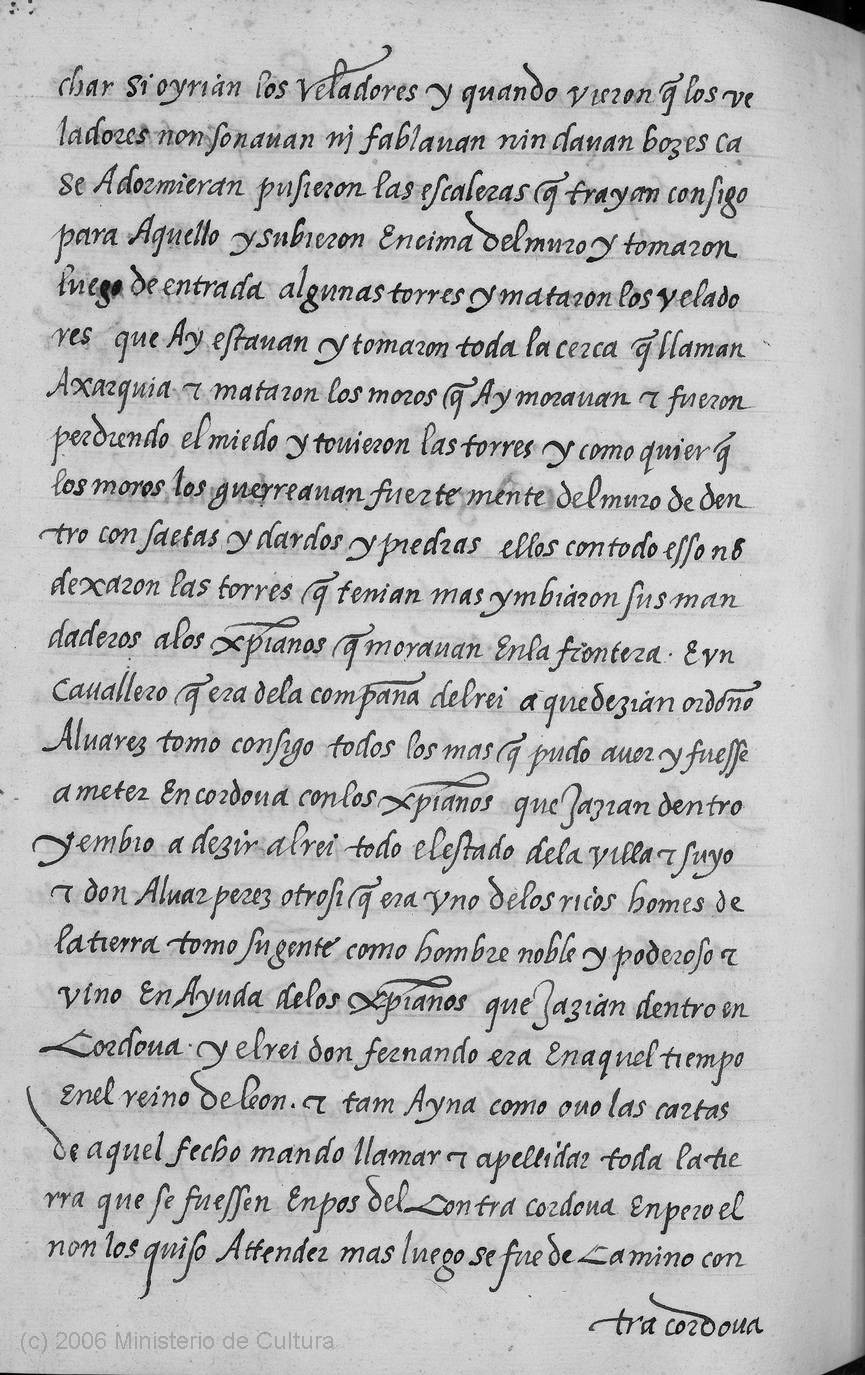 char si oyrian los veladores y quando vieron q̃ los ve
ladores non sonauan nj fablauan nin dauan bozes ca
se Adormieran pusieron las escaleras q̃ trayan consigo
para Aquello y subieron Encima del muro y tomaron
luego de entrada algunas torres y mataron los velado
res que Ay estauan y tomaron toda la cerca q̃ llaman
Axarquia ⁊ mataron los moros q̃ Ay morauan ⁊ fueron
perdiendo el miedo y touieron las torres y como quier q̃
los moros los guerreauan fuerte mente del muro de den
tro con saetas y dardos y piedras ellos con todo esso nõ
dexaron las torres q̃ tenian mas ymbiaron sus man
daderos a los xp̃ianos q̃ morauan En la frontera. E vn
Cauallero q̃ era de la compaña del rei a que dezian ordoño
Aluarez tomo consigo todos los mas q̃ pudo auer y fuesse
a meter En cordoua con los xp̃ianos que Jazian dentro
y embio a dezir al rei todo el estado de la villa ⁊ suyo
⁊ don Aluar perez otrosi q̃ era vno de los ricos homes de
la tierra tomo su gente como hombre noble y poderoso ⁊
vino En Ayuda de los xp̃ianos que Jazian dentro en
Cordoua. y el rei don fernando era En aquel tiempo
En el reino de leon. ⁊ tam Ayna como ouo las cartas
de aquel fecho mando llamar ⁊ apellidar toda la tie
rra que se fuessen En pos del Contra cordoua Enpero el
non los quiso Attender mas luego se fue de Camino con
tra cordoua
(c) 2006 Ministerio de Cultura